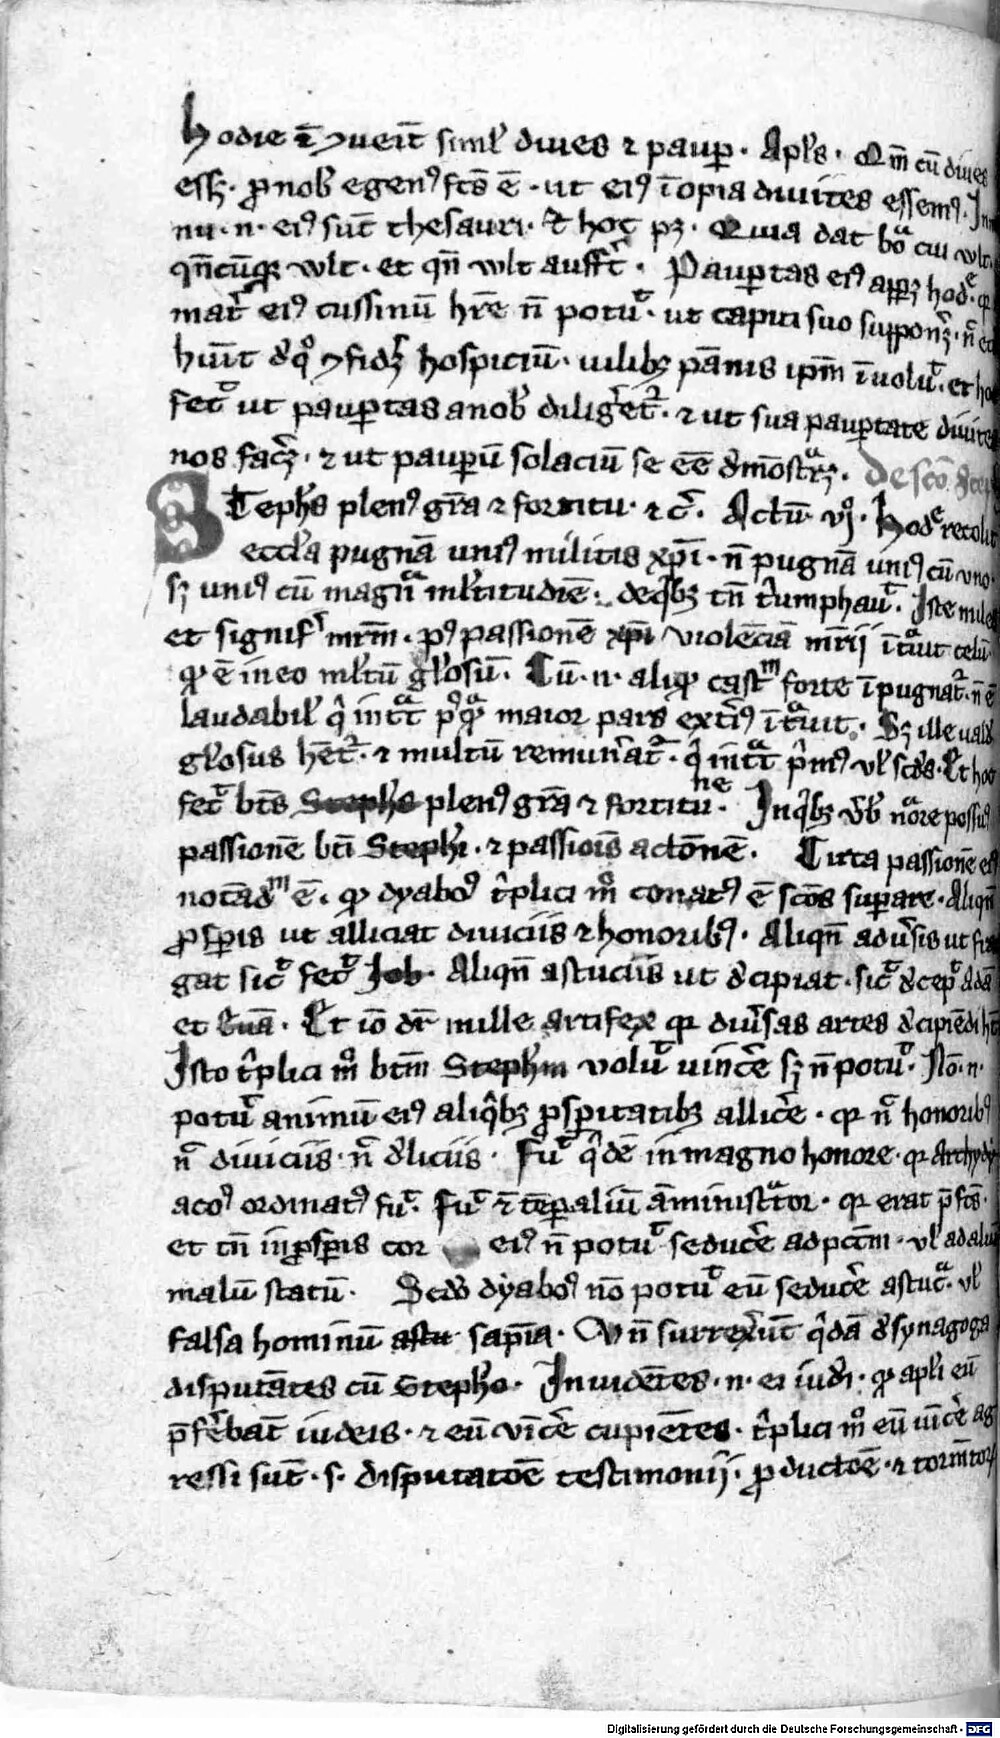 hodie i͞ ꝯueīt siml̓ diues ⁊ paup̱ · Apl̓s · Qm̄ cū diues
eſſꝫ · ꝓ nob̓ egenꝰ fc̄s ē · ut eiꝰ īopia diuites eſſemꝰ ·
nu · n · eiꝰ sūt thesauri · Et hoc pꝫ · Quia dat boᷓ cui wlt ·
qn̄cūqꝫ wlt · et qn̄ wlt auffert · Paup̱tas eiꝰ apparꝫ hodᵉ · qꝛ
mat̓ eiꝰ cussinū hr̄e n̄ potuᵗ · ut capiti suo supponꝫ̓ · n̄
hūıt hospiciū · uilibꝫ pānis ipm̄ īuoluᵗ · et hoc
fecᵗ ut paup̱tas anob̓ diliger̄etᷣ · ⁊ ut sua paup̱tate diuites
nos facꝫ̓ · ⁊ ut paup̱ū solaciū se eē dem̄ostrarꝫ · De sc̄o
STeph̓s plenꝰ gr̄a ⁊ fortitu · ⁊ c̓ · Actuū · vj · hodᵉ recolit
eccl̓a pugnā uniꝰ militis xp̄i · n̄ pugnā uniꝰ cū uno ·
sꝫ uniꝰ cū magᷓ ml̓titudiē · deqᷤbꝫ tn̄ t̓umphauᵗ · Iste miles
et signifᵉʳ mr̄m · pꝰ passionē xp̄i violēciā mr̄ij īt̾uit celū
qꝛ ē in eo ml̓tū gl̓osū · Cū · n · aliqᵈ castᵐ forte īpugnatᷣ · n̄ ē
laudabil̓ q̓ int̾t pᵒqᷓ maior pars exerc̓ꝰ īt̾uit · Sꝫ ille ualde
gl̓osus hētᷣ · ⁊ multū remun̓atᷣ · q̓ int̾t p̓mꝰ vl̓ scd̓s · Et hoc
fecᵗ bt̄s Steph̓s plenꝰ gr̄a ⁊ fortituⁿᵉ · In qᷤbꝫ vb̓ possuꝰ
passionē bt̄i Steph̓i · ⁊ passiois̄ actōnē · Circa passionē eiꝰ
notādᵐ ē · qꝛ dyabol̓ꝰ t̓plici mᵒ conatꝰ ē sc̄os sup̱are · Aliqn̄
ꝓsp̱is ut alliciat diuiciis ⁊ honoribꝰ · Aliqn̄ adu̓sis ut frā
gat sicᵗ fecᵗ Iob · Aliqn̄ astuciis ut decipiat · sicᵗ decepᵗ adā
et Euā · Et iō dr̄ mille artifex qꝛ diu̓sas artes decipiēdi ht̄
Isto t̓plici mᵒ bt̄m Steph̓m voluᵗ uinc̓e sꝫ n̄ potuᵗ · Nō · n ·
potuᵗ animū eiꝰ aliqᷤbꝫ ꝓsp̱itatibꝫ allic̓e · qꝛ n̄ honoribꝰ
n̄ diuiciis · n̄ deliciis · fuᵗ q̓dē in magno honore · qꝛ archydy
acoꝰ ordinatꝰ fuᵗ · fuᵗ ⁊ tēp̱aliū āminist̾tor · qꝛ erat p̄fc̄s ·
et tn̄ in ꝓsp̱is cor eiꝰ n̄ potuᵗ seduc̓e ad pcc̄m · vl̓ ad aliū
malū statū · Scd̓o dyabol̓ꝰ nō potuᵗ eū seduc̓e astucᷓ · vl̓
falsa hominū astu sapīa · Vn̄ surrexer̄ut q̓dā de synagoga
disputātes cū Steph̓o · Inuidētes · n · ei iud̓i · qꝛ apl̓i eū
p̄fer̄bāt iudeis · ⁊ eū vīc̓e cupiētes · t̓plici mᵒ eū uīc̓e ag
ressi sūt · s · disputatōe testimonij · ꝓductōe · ⁊ torm̄tor̄